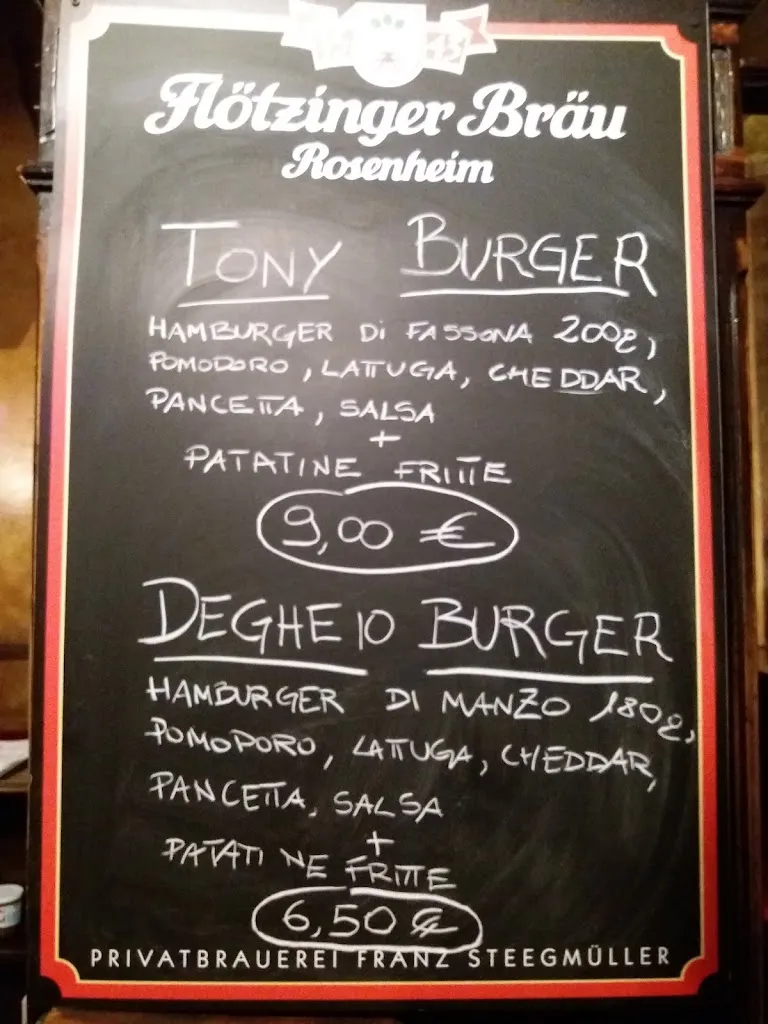 Flötzinger Bräu
Rosenheim
TONY BURGER
HAMBURGER Di FASSONA 200g,
POMODORO, LATTUGA, CHEDDAR,
PANCETTA, SALSA
+
PATATINE FRITTE
9,00 €
DEGHEIO BURGER
HAMBURGER DI MANZO 180g,
POMODORO, LATTUGA, CHEDDAR,
PANCETTA, SALSA
+
PATATINE FRITTE
6,50 €
PRIVATBRAUEREI FRANZ STEEGMÜLLER